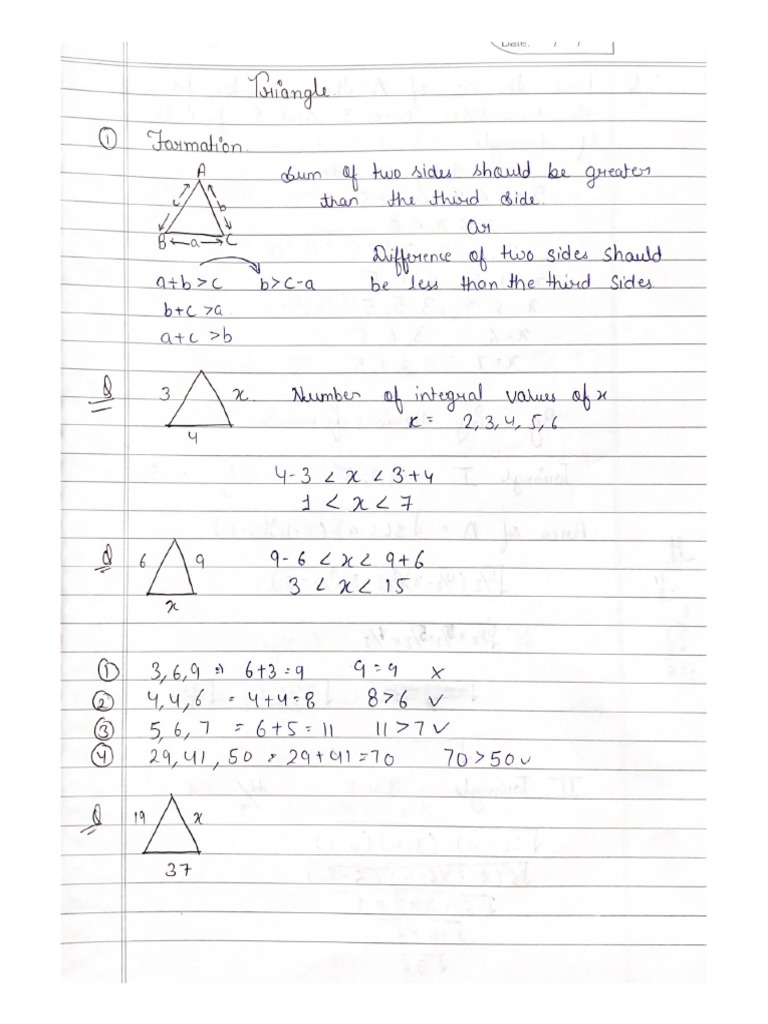 Date: / /
Triangle
① Farmation
A
Sum of two sides should be greater
than the third side.
c b
or
B a C
Difference of two sides should
a+b>c b>c-a be less than the third sides
b+c >a
a+c >b
Q 3 x Number of integral values of x
4 x = 2,3,4,5,6
4-3 < x < 3+4
1 < x < 7
Q 6 9 9-6 < x < 9+6
x 3 < x < 15
① 3,6,9 ⇒ 6+3=9 9=9 ×
② 4,4,6 = 4+4=8 8>6 ✓
③ 5,6,7 = 6+5=11 11>7 ✓
④ 29,41,50 = 29+41=70 70>50 ✓
Q 19 x
37